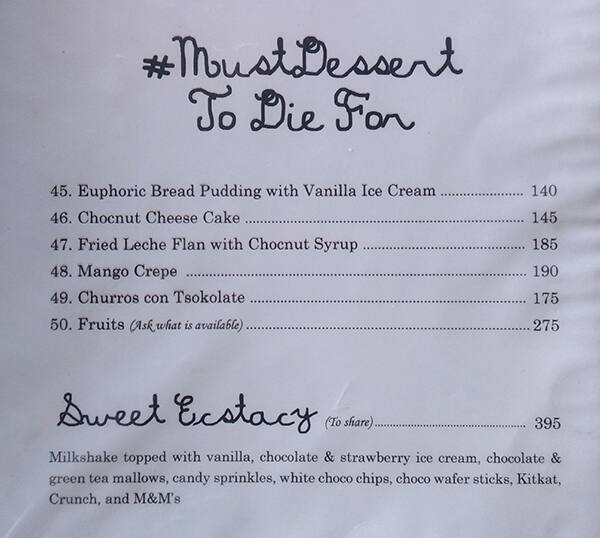 #MustDessert
To Die For
45. Euphoric Bread Pudding with Vanilla Ice Cream ..................... 140
46. Chocnut Cheese Cake ........................................................................ 145
47. Fried Leche Flan with Chocnut Syrup .......................................... 185
48. Mango Crepe ....................................................................................... 190
49. Churros con Tsokolate ....................................................................... 175
50. Fruits (Ask what is available) ......................................................................... 275
Sweet Ecstacy (To share) ....................................... 395
Milkshake topped with vanilla, chocolate & strawberry ice cream, chocolate &
green tea mallows, candy sprinkles, white choco chips, choco wafer sticks, Kitkat,
Crunch, and M&M's